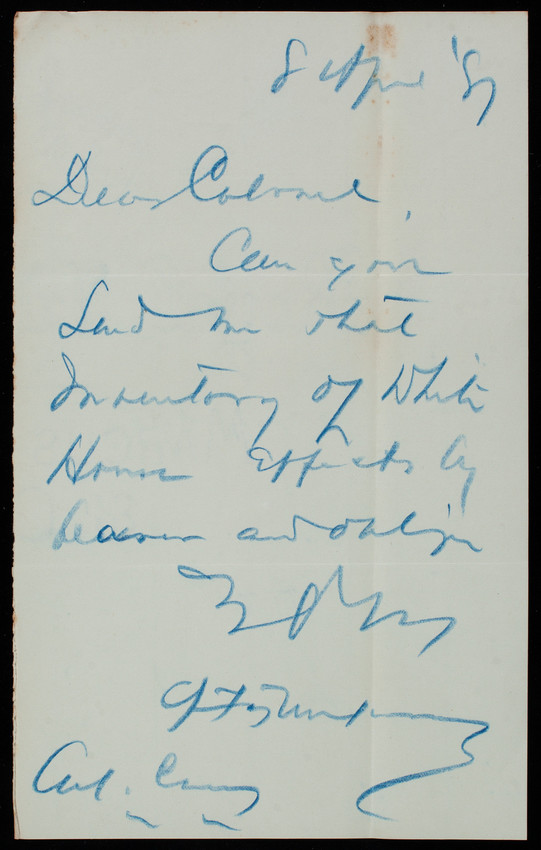 8 April '87
Dear Colonel,
Can you
Send me that
Inventory of White
House Effects by
bearer and oblige
Col. Casey